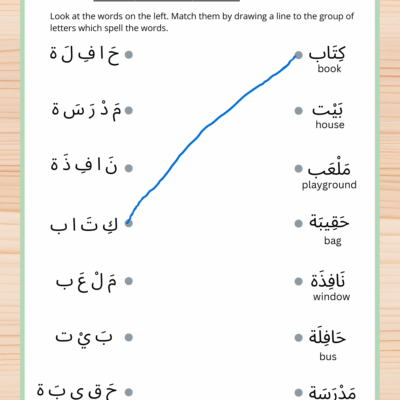 Look at the words on the left. Match them by drawing a line to the group of
letters which spell the words.
حَ ا فِ لَ ة
كِتَاب
book
مَ دْ رَ سَ ة
بَيْت
house
نَ ا فِ ذَ ة
مَلْعَب
playground
كِ تَ ا ب
حَقِيبَة
bag
مَ لْ عَ ب
نَافِذَة
window
بَ يْ ت
حَافِلَة
bus
حَ قِ ي بَ ة
مَدْرَسَة